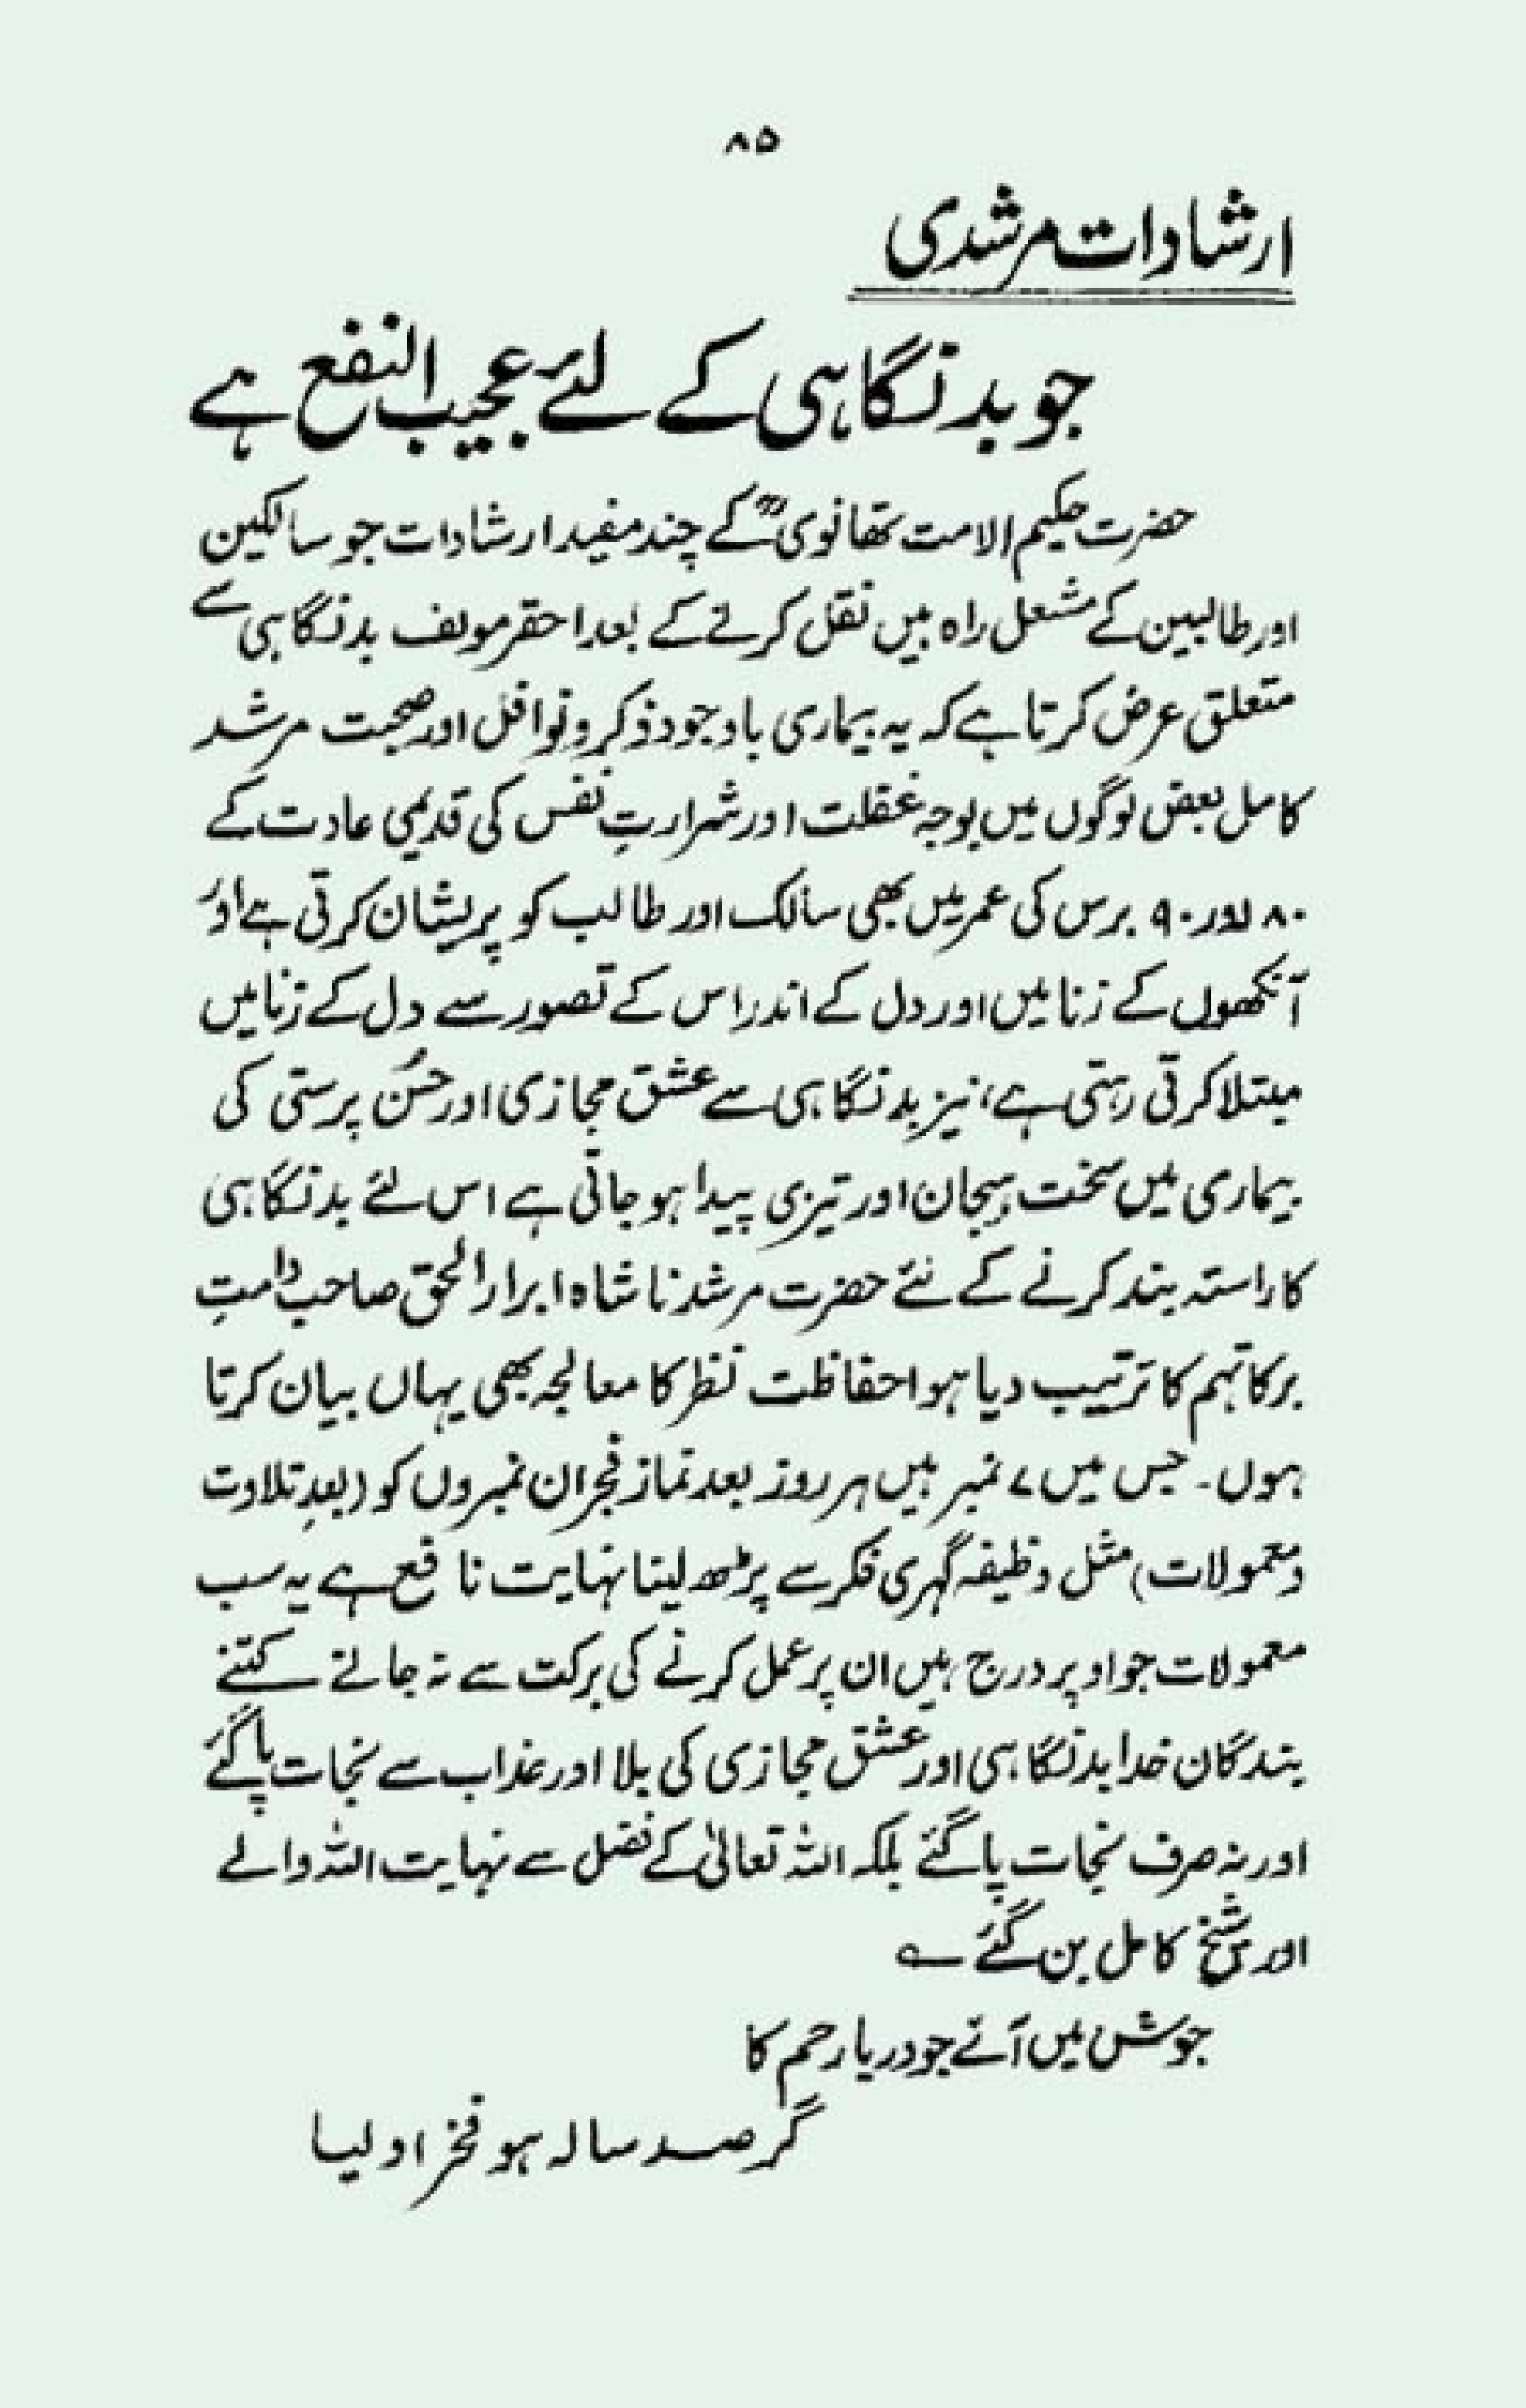 ۸۵
ارشادات مرشدی
جو بدنگاہی کے لئے عجیب النفع ہے
حضرت حکیم الامت تھانویؒ کے چند مفید ارشادات جو سالکین
اور طالبین کے مشعل راہ ہیں نقل کرنے کے بعد احقر مولف بدنگاہی سے
متعلق عرض کرتا ہے کہ یہ بیماری باوجود ذکر و نوافل اور صحبت مرشد
کامل بعض لوگوں میں بوجہ غفلت اور شرارتِ نفس کی قدیمی عادت کے
۸۰ اور ۹۰ برس کی عمر میں بھی سالک اور طالب کو پریشان کرتی ہے اور
آنکھوں کے زنا میں اور دل کے اندر اس کے تصور سے دل کے زنا میں
مبتلا کرتی رہتی ہے، نیز بدنگاہی سے عشق مجازی اور حُسن پرستی کی
بیماری میں سخت ہیجان اور تیزی پیدا ہو جاتی ہے اس لئے بدنگاہی
کا راستہ بند کرنے کے لئے حضرت مرشدنا شاہ ابرار الحق صاحب دامت
برکاتہم کا ترتیب دیا ہوا حفاظت نظر کا معالجہ بھی یہاں بیان کرتا
ہوں۔ جس میں ۷ نمبر ہیں ہر روز بعد نماز فجر ان نمبروں کو (بعدِ تلاوت
و معمولات) مثل وظیفہ گہری فکر سے پڑھ لینا نہایت نافع ہے یہ سب
معمولات جو اوپر درج ہیں ان پر عمل کرنے کی برکت سے نہ جانے کتنے
بندگان خدا بدنگاہی اور عشق مجازی کی بلا اور عذاب سے نجات پا گئے
اور نہ صرف نجات پا گئے بلکہ اللہ تعالیٰ کے فضل سے نہایت اللہ والے
اور شیخ کامل بن گئے ؎
جوش میں آئے جو دریا رحم کا
گر صد سالہ ہو فخر اولیا